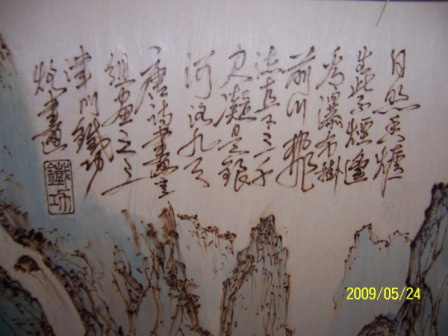 日照香爐
生紫煙遙
看瀑布掛
前川飛
流直下三千
尺疑是銀
河落九天
唐詩書畫
組畫之三
津門鐵坊
鐵坊
2009/05/24